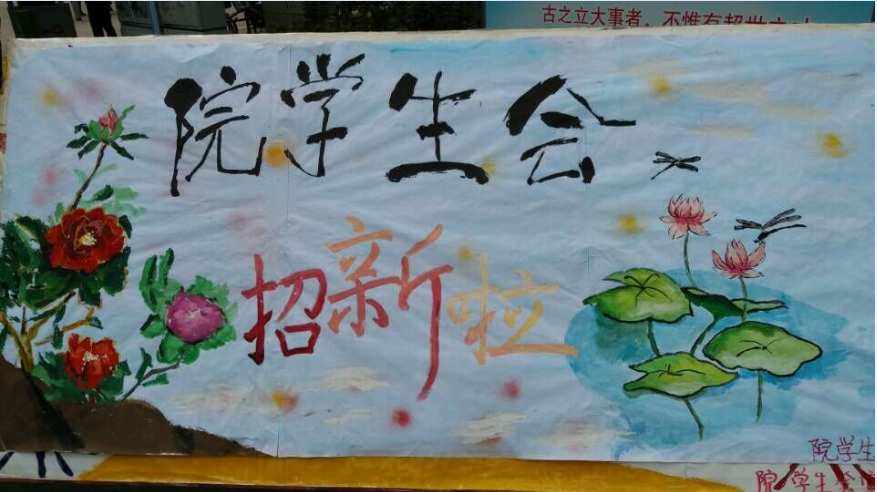 古之立大事者，不惟有超世之才
院学生会
招新啦
院学生
院学生会